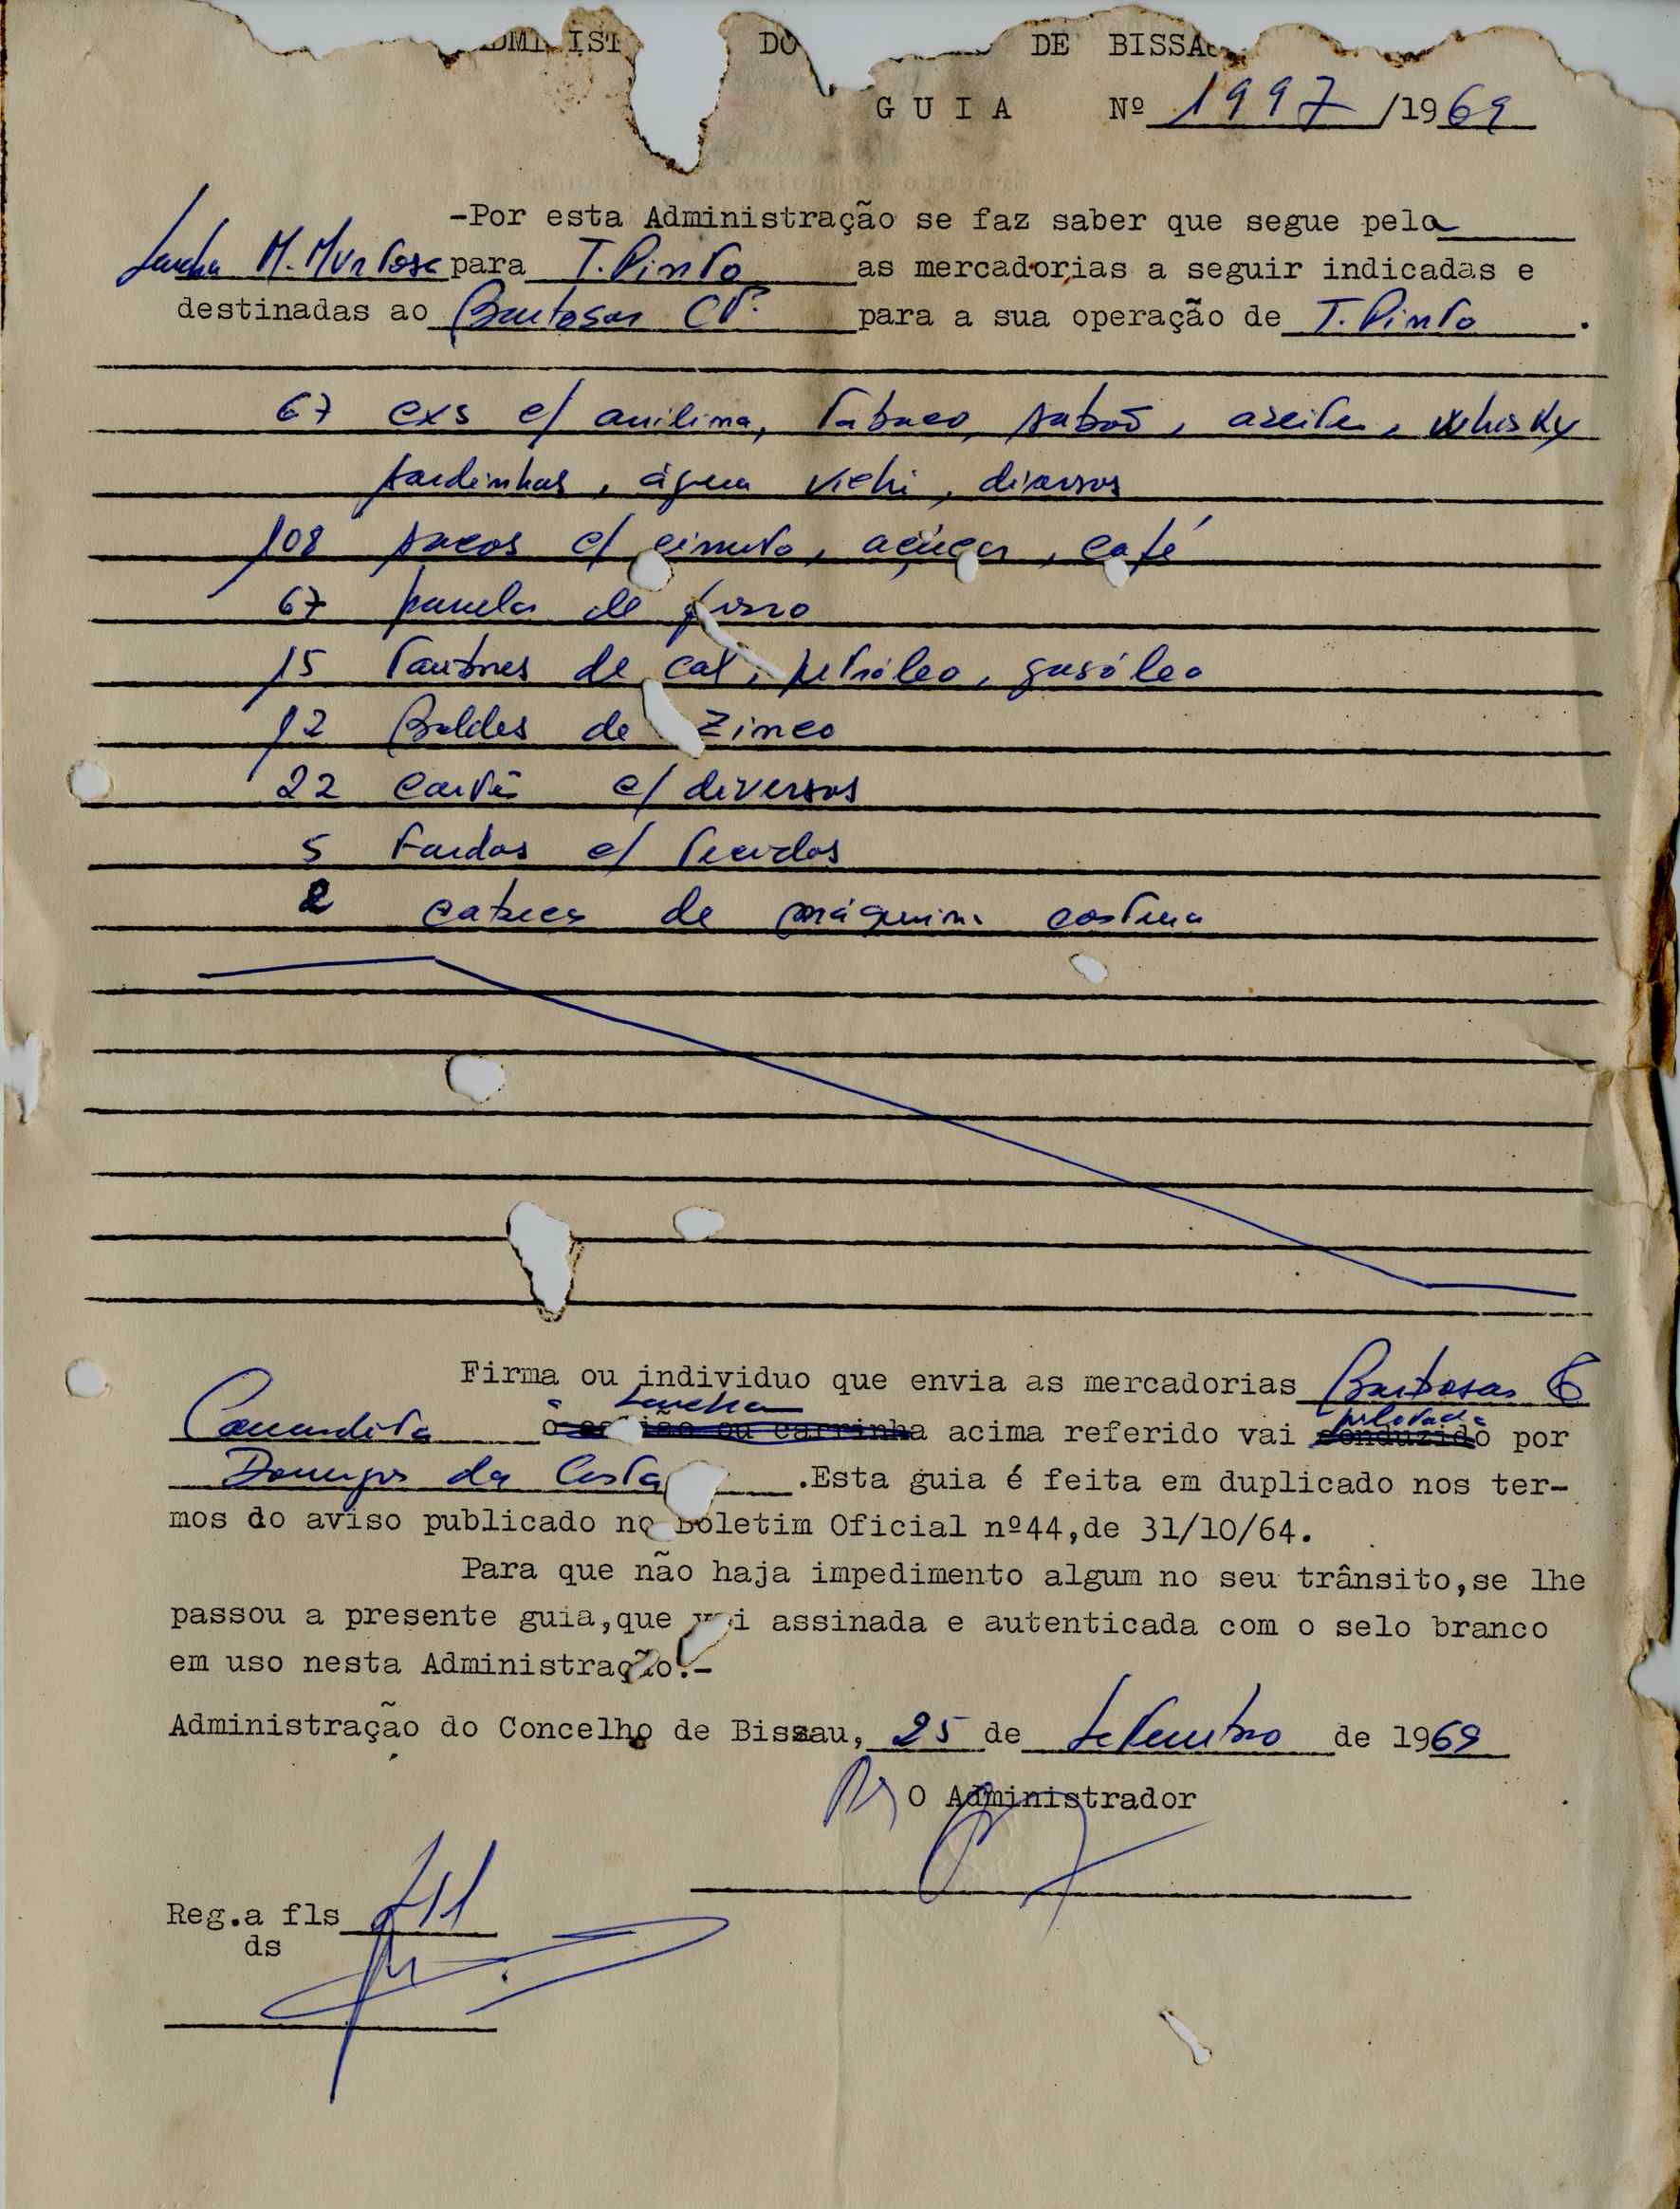 DO DE BISSA
GUIA Nº 1997 /1969
-Por esta Administração se faz saber que segue pela
Lancha M. Murtosa para T. Pinto as mercadorias a seguir indicadas e
destinadas ao Barbosas Cta para a sua operação de T. Pinto .
67 cxs c/ anilina, Tabaco, sabão, azeite, whisky
sardinhas, água vichi, diversos
108 sacos c/ cimento, açúcar, café
67 panelas de ferro
15 Tambores de cal, petróleo, gasóleo
12 Baldes de Zinco
22 c/ diversos
5 Fardos c/ Tecidos
2 cabeças de máquina costura
Firma ou individuo que envia as mercadorias Barbosas &
Lancha pilotada
Comandita o ou carrinha acima referido vai conduzido por
Domingos da Costa .Esta guia é feita em duplicado nos ter-
mos do aviso publicado no Boletim Oficial nº44,de 31/10/64.
Para que não haja impedimento algum no seu trânsito,se lhe
passou a presente guia,que vai assinada e autenticada com o selo branco
em uso nesta Administração.-
Administração do Concelho de Bissau, 25 de Setembro de 1969
O Administrador
Reg.a fls
ds